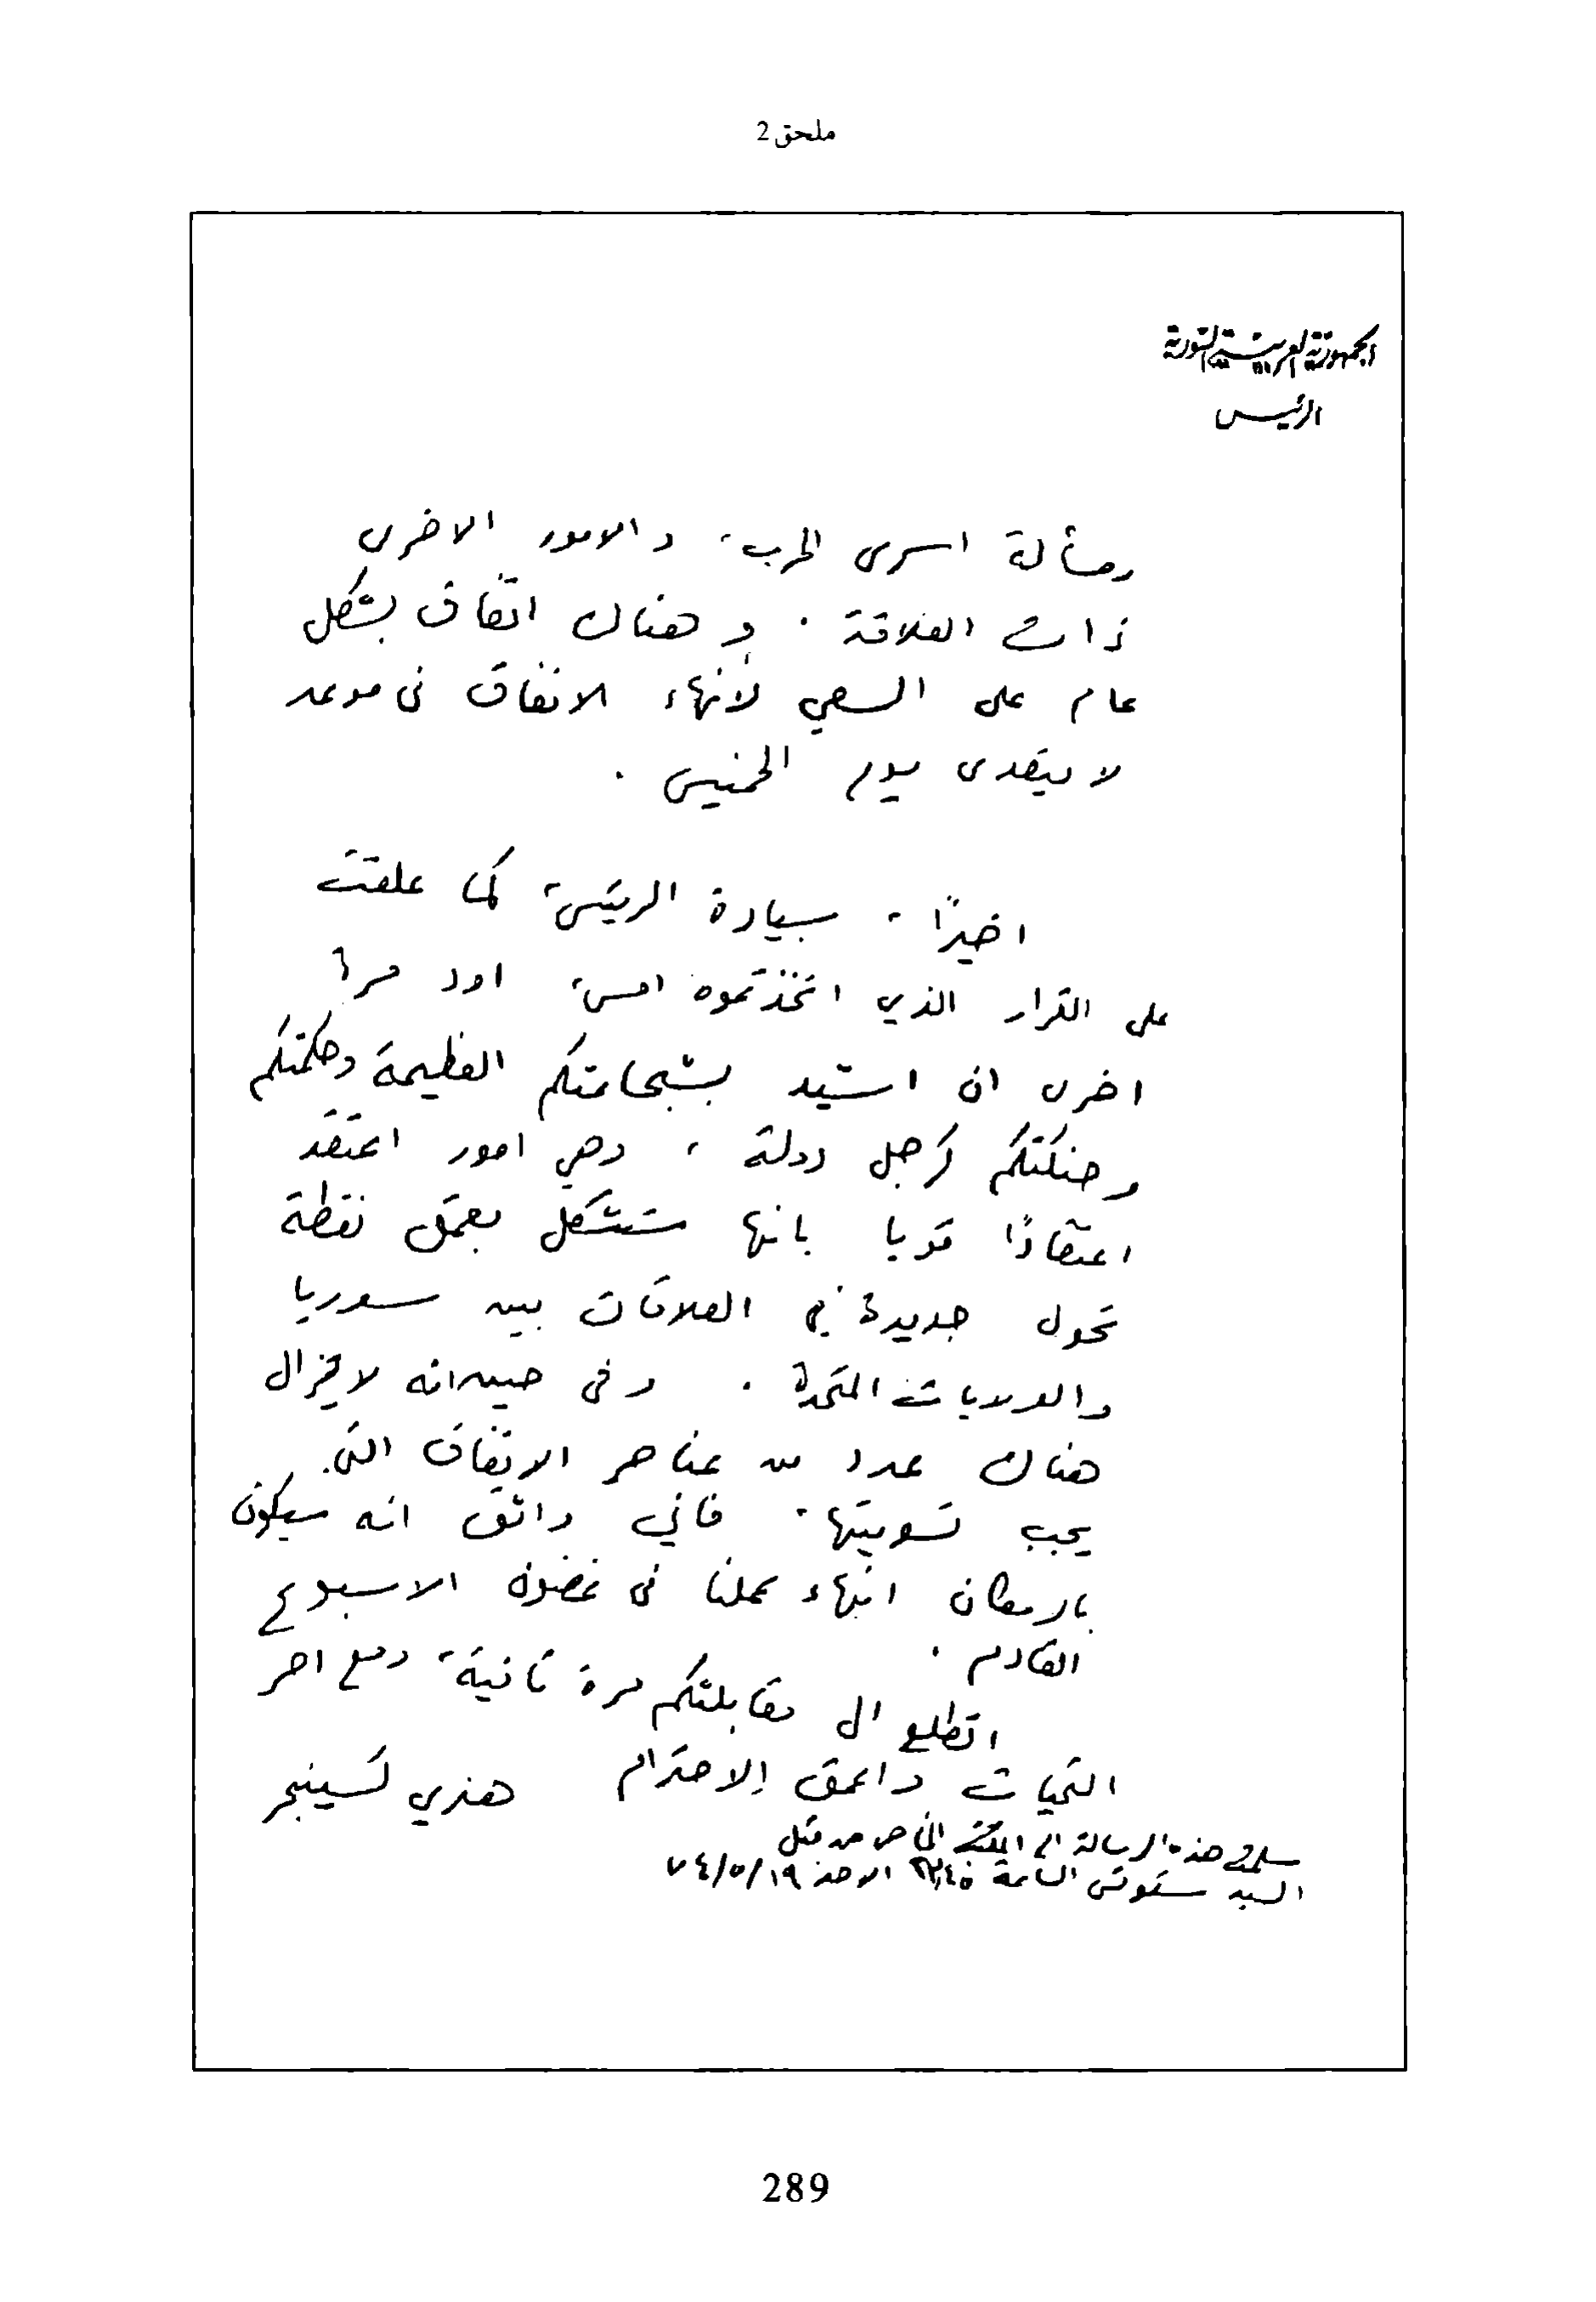 ملحق 2
الجمهورية العربية السورية
الرئيس
ومسألة اسرى الحرب، والامور الاخرى
ذات العلاقة . وهناك اتفاق بشكل
عام على السعي لأنهاء الاتفاق في موعد
لا يتعدى يوم الخميس .
اخيرًا، سيادة الرئيس، كما علقت
على القرار الذي اتخذتموه امس، اود مرة
اخرى ان اشيد بشجاعتكم العظيمة وحكمتكم
وحنكتكم كرجل دولة ، وهي امور اعتقد
اعتقادًا قويا بانها ستشكل بعمق نقطة
تحول جديدة في العلاقات بين سوريا
والولايات المتحدة . وفي حين انه لا يزال
هناك عدد من عناصر الاتفاق التي
يجب تسويتها، فاني واثق انه سيكون
بالامكان انهاء عملنا في غضون الاسبوع
القادم .
اتطلع الى مقابلتكم مرة ثانية، ومع احر
التحيات واعمق الاحترام هنري كسينجر
سلمت هذه الرسالة الى المكتب الخاص من قبل
السيد سكوتس الساعة الاحد ١٩/٥/٧٤
289